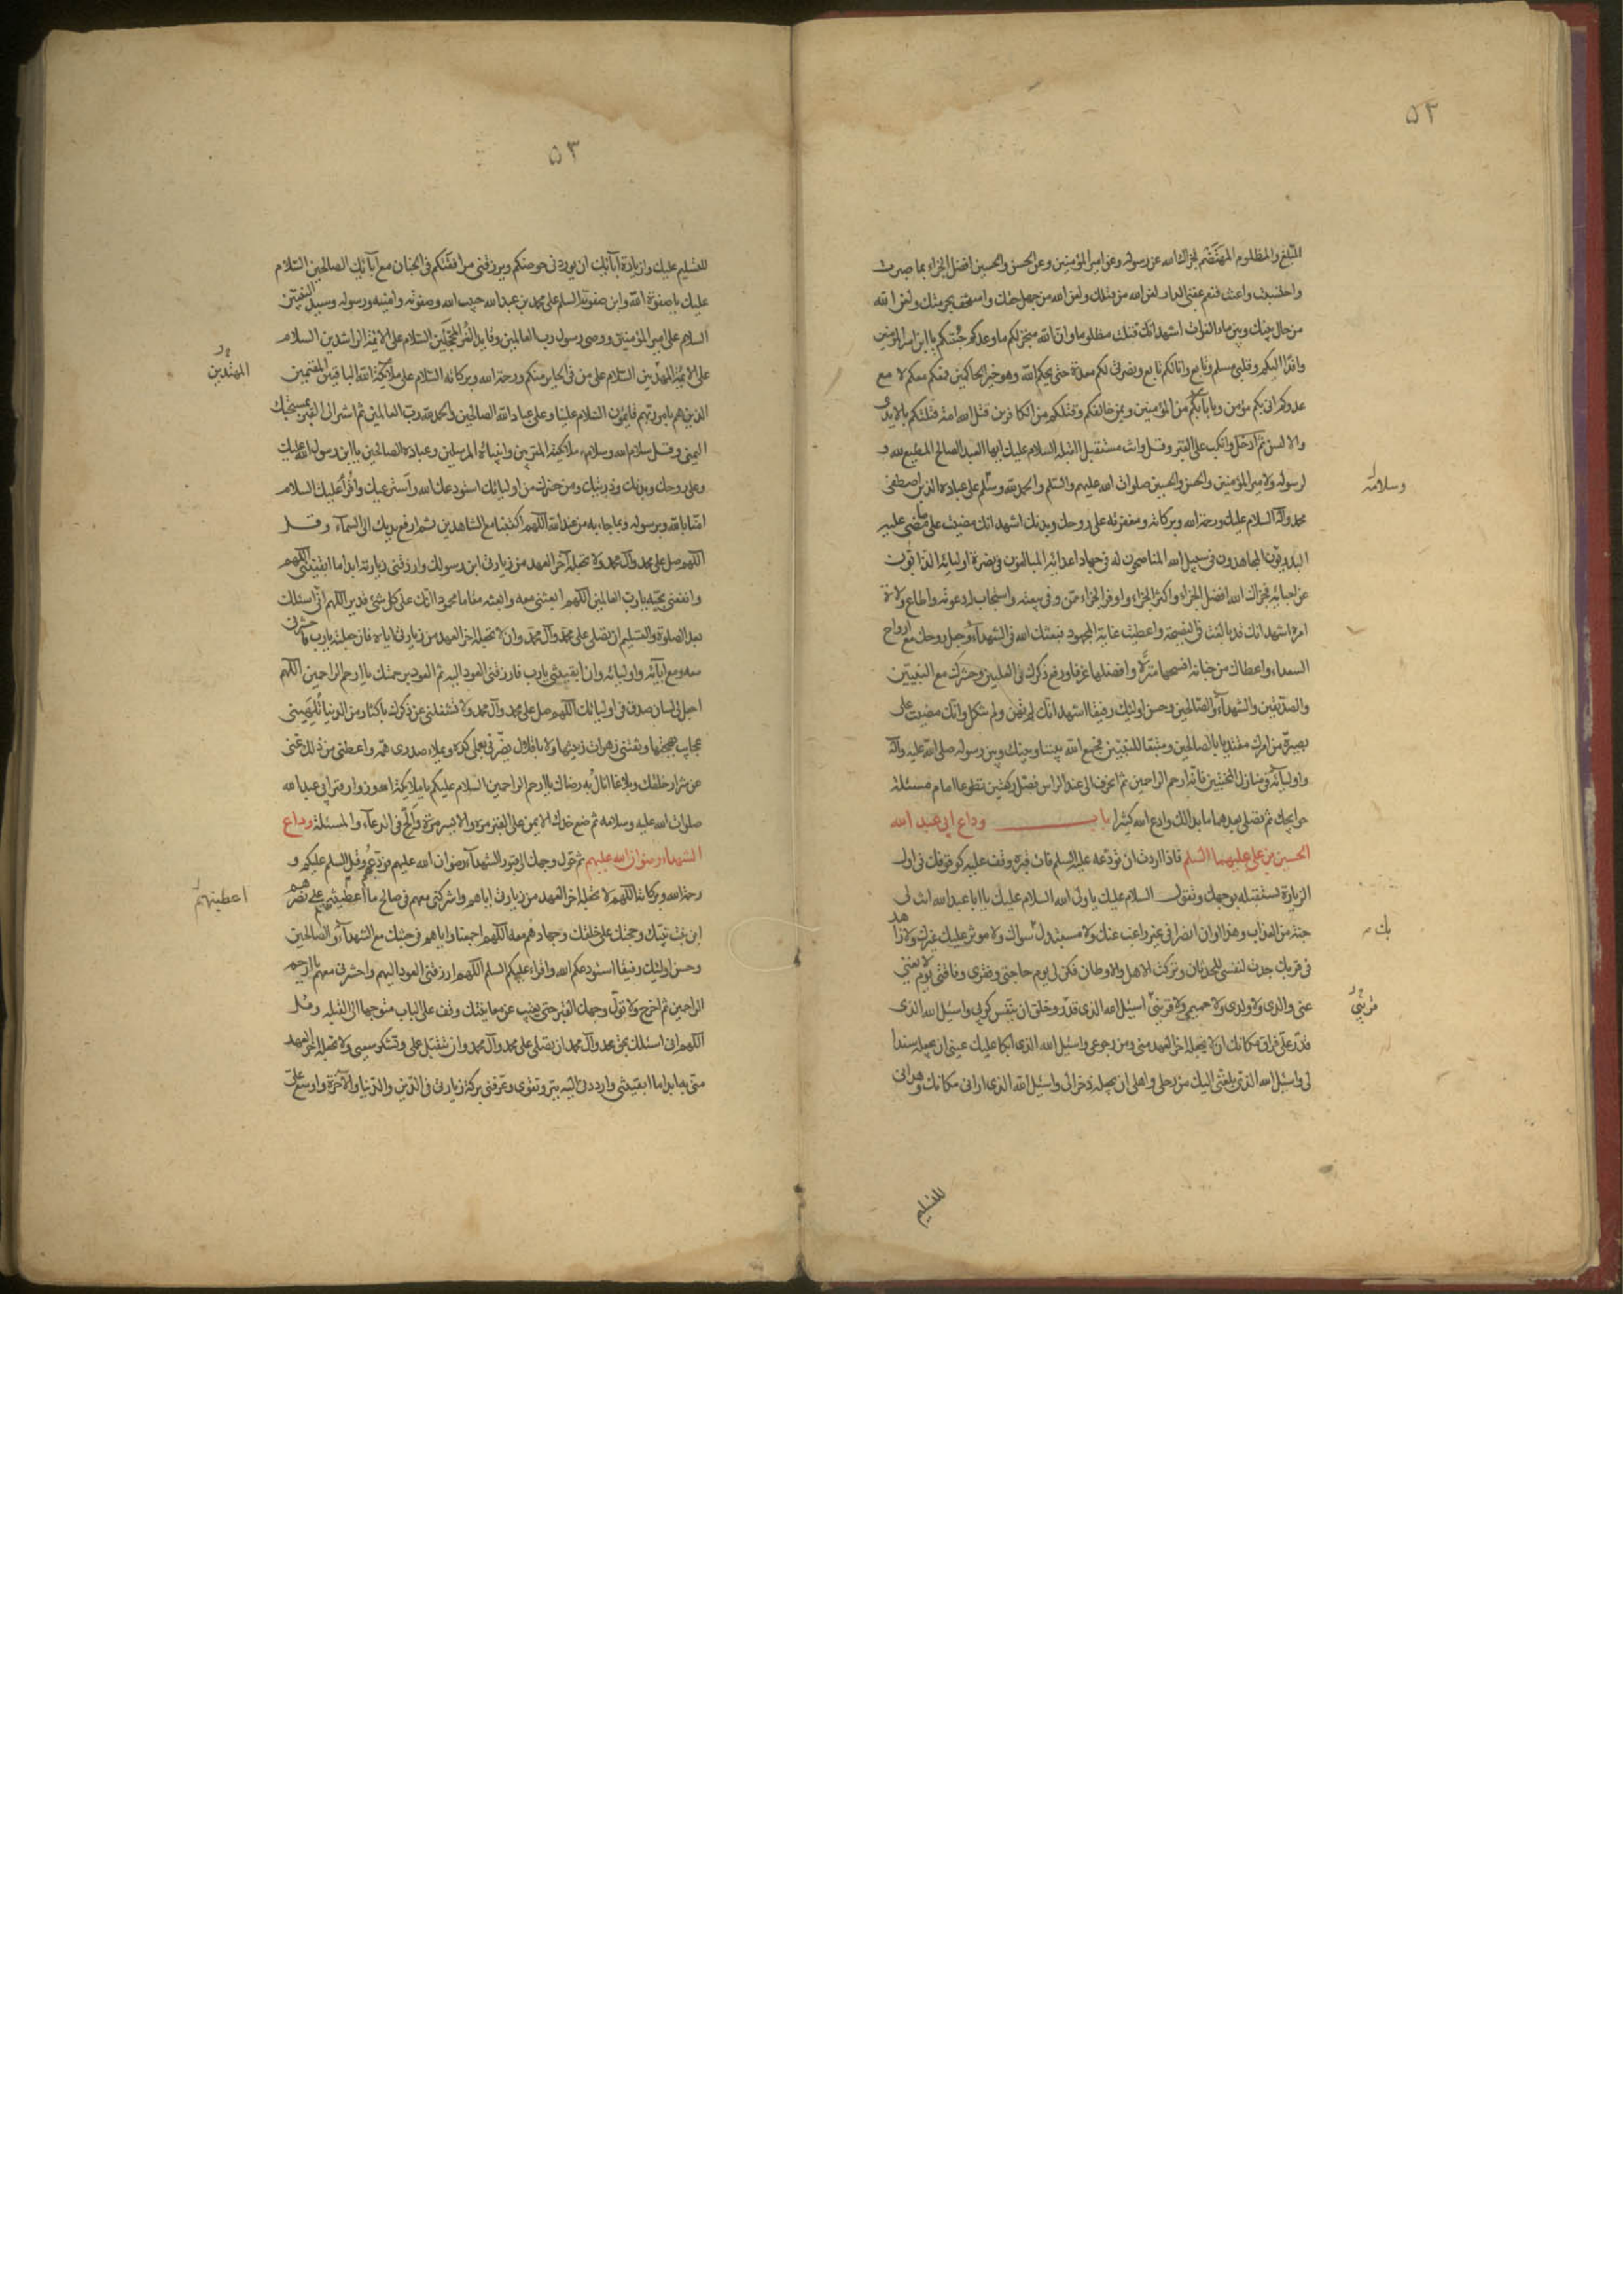 ۵۲
المبلغ والمظلوم المهتضم فجزاك الله عن رسوله وعن امير المؤمنين وعن الحسن والحسين افضل الجزاء بما صبرت
واحتسبت واعنت فنعم عقبى الدار لعن الله من قتلك ولعن الله من جهل حقك واستخف بحرمتك ولعن الله
من حال بينك وبين ماء الفرات اشهد انك قتلت مظلوما وان الله منجز لكم ما وعدكم جئتكم يا ابن امير المؤمنين
وافدا اليكم وقلبي مسلم وتابع وانا لكم تابع ونصرتى لكم معدة حتى يحكم الله وهو خير الحاكمين فمعكم معكم لا مع
عدوكم انى بكم مؤمن وبايابكم من المؤمنين وبمن خالفكم وقتلكم من الكافرين قتل الله امة قتلتكم بالايدى
والالسن ثم ادخل وانكب على القبر وقل وانت مستقبل القبلة السلام عليك ايها العبد الصالح المطيع لله و
لرسوله ولامير المؤمنين والحسن والحسين صلوات الله عليهم والسلم والحمد لله وسلم على عباده الذين اصطفى
وسلامه
محمد وآله السلام عليك ورحمة الله وبركاته ومغفرته على روحك وبدنك اشهد انك مضيت على ما مضى عليه
البدريون المجاهدون فى سبيل الله المناصحون له فى جهاد اعدائه المبالغون فى نصرة اوليائه الذابون
عن احبائه فجزاك الله افضل الجزاء واكثر الجزاء واوفر الجزاء ممن وفى ببيعته واستجاب له دعوته واطاع ولاة
امره اشهد انك قد بالغت فى النصيحة واعطيت غاية المجهود فبعثك الله فى الشهداء وجعل روحك مع ارواح
السعداء واعطاك من جنانه افسحها منزلا وافضلها غرفا ورفع ذكرك فى العليين وحشرك مع النبيين
والصديقين والشهداء والصالحين وحسن اولئك رفيقا اشهد انك لم تهن ولم تنكل وانك مضيت على
بصيرة من امرك مقتديا بالصالحين ومتبعا للنبيين فجمع الله بيننا وبينك وبين رسوله صلى الله عليه وآله
واوليائه فى منازل المخبتين فانه ارحم الراحمين ثم انحرف الى عند الراس فصل ركعتين تطوعا امام مسئلة
حوايجك ثم تصلى بعدهما ما بدا لك وادع الله كثيرا باب وداع ابى عبد الله
الحسين بن على عليهما السلم فاذا اردت ان تودعه عليه السلم فات قبره وقف عليه كوقوفك فى اول
الزيارة تستقبله بوجهك وتقول السلام عليك يا ولى الله السلام عليك يا ابا عبد الله انت لى
جنة من العذاب وهذا اوان انصرافى غير راغب عنك ولا مستبدل سواك ولا موثر عليك غيرك ولا زاهد
بك
فى قربك جدت لنفسى للحدثان وتركت الاهل والاوطان فكن لى يوم حاجتى وفقرى وفاقتى يوم لا يغنى
عنى والدى ولا ولدى ولا حميمى ولا قرينى اسئل الله الذى قدر وخلق ان ينفس كربى واسئل الله الذى
قدر على فراق مكانك ان لا يجعله اخر العهد منى ومن رجوعى واسئل الله الذى ابكا عليك عينى ان يجعله سندا
لى واسئل الله الذى بلغنى اليك من رحلى واهلى ان يجعله ذخرا لى واسئل الله الذى ارانى مكانك وهدانى
للتسليم
۵۳
للتسليم عليك ولزيارة آبائك ان يوردنى حوضكم ويرزقنى مرافقتكم فى الجنان مع آبائك الصالحين السلام
عليك يا صفوة الله وابن صفوته السلم على محمد بن عبد الله حبيب الله وصفوته وامينه ورسوله وسيد النبيين
السلام على امير المؤمنين ووصى رسول رب العالمين وقايد الغر المحجلين السلام على الائمة الراشدين السلام
على الائمة المهديين السلام على من فى الحاير منكم ورحمة الله وبركاته السلام على ملائكة الله الباقين المقيمين
المهتدين
الذين هم بامر ربهم قايمون السلام علينا وعلى عباد الله الصالحين والحمد لله رب العالمين ثم اشر الى القبر بمسبحتك
اليمنى وقل سلام الله وسلام ملائكته المقربين وانبيائه المرسلين وعباده الصالحين يا ابن رسول الله عليك
وعلى روحك وبدنك وذريتك ومن حضرك من اوليائك استودعك الله واسترعيك واقرأ عليك السلام
امنا بالله وبرسوله وبما جاء به من عند الله اللهم اكتبنا مع الشاهدين ثم ارفع يديك الى السماء وقل
اللهم صل على محمد وآل محمد ولا تجعله آخر العهد من زيارتى ابن رسولك وارزقنى زيارته ابدا ما ابقيتنى اللهم
وانفعنى بحبه يا رب العالمين اللهم ابعثنى معه وابعثه مقاما محمودا انك على كل شئ قدير اللهم انى اسئلك
بعد الصلوة والتسليم ان تصلى على محمد وآل محمد وان لا تجعله اخر العهد من زيارتى اياه فان جعلته يا رب فاحشرنى
معه ومع ابائه واوليائه وان ابقيتنى يا رب فارزقنى العود اليه ثم العود برحمتك يا ارحم الراحمين اللهم
اجعل لى لسان صدق فى اوليائك اللهم صل على محمد وآل محمد ولا تشغلنى عن ذكرك باكثار من الدنيا تلهينى
عجايب بهجتها وتفتننى زهرات زينتها ولا باقلال يضر فى بعملى كده ويملاء صدرى همه واعطنى من ذلك غنى
عن شرار خلقك وبلاغا انال به رضاك يا ارحم الراحمين السلام عليكم يا ملائكة الله وزوار قبر ابى عبد الله
صلوات الله عليه وسلامه ثم ضع خدك الايمن على القبر مرة والايسر مرة والح فى الدعاء والمسئلة وداع
الشهداء رضوان الله عليهم ثم حول وجهك الى قبور الشهداء رضوان الله عليهم فودعهم وقل السلم عليكم و
رحمة الله وبركاته اللهم لا تجعله اخر العهد من زيارتى اياهم واشركنى معهم فى صالح ما اعطيتهم على نصرهم
اعطيتهم
ابن بنت نبيك وحجتك على خلقك وجهادهم معه اللهم اجمعنا واياهم فى جنتك مع الشهداء والصالحين
وحسن اولئك رفيقا استودعكم الله واقراء عليكم السلم اللهم ارزقنى العود اليهم واحشرنى معهم يا ارحم
الراحمين ثم اخرج ولا تول وجهك القبر حتى يغيب عن معاينتك وقف على الباب متوجها الى القبلة وقل
اللهم انى اسئلك بحق محمد وآل محمد ان تصلى على محمد وآل محمد وان تتقبل عملى وتشكر سعيى ولا تجعله اخر العهد
منى به ابدا ما ابقيتنى وارددنى اليه ببر وتقوى وعرفنى بركة زيارتى فى الدين والدنيا والآخرة واوسع على